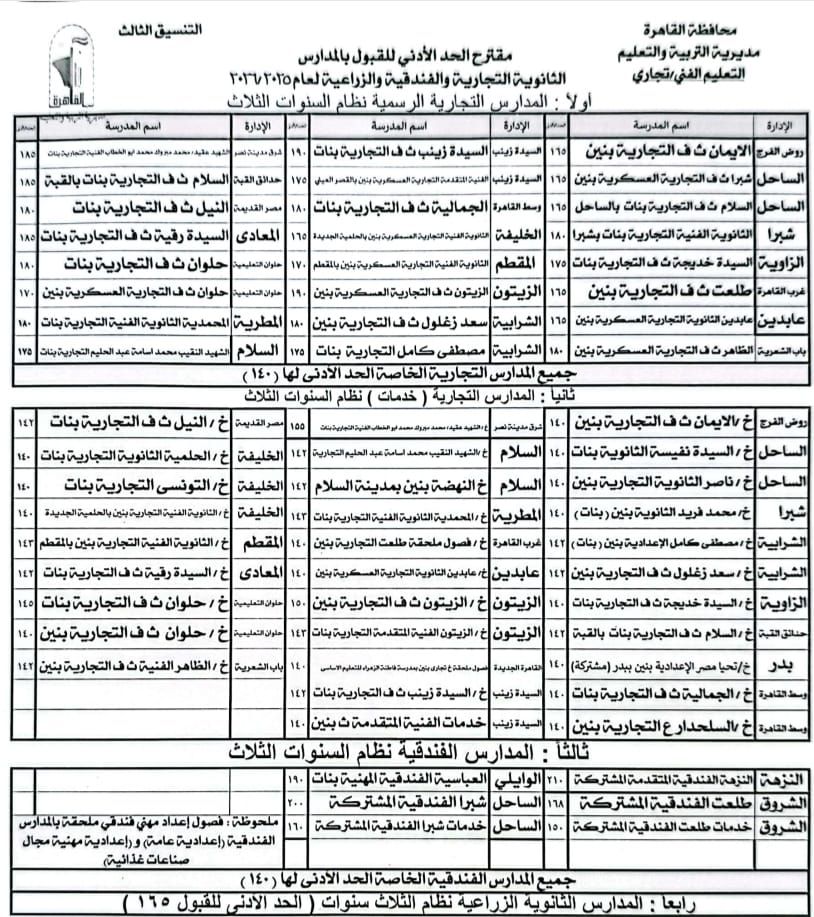 محافظة القاهرة
مديرية التربية والتعليم
التعليم الفني/تجاري
التنسيق الثالث
القاهرة
مقترح الحد الأدني للقبول بالمدارس
الثانوية التجارية والفندقية والزراعية لعام ٢٠٢٦/٢٠٢٥
أولاً : المدارس التجارية الرسمية نظام السنوات الثلاث
الإدارة اسم المدرسة الإدارة اسم المدرسة الإدارة اسم المدرسة
روض الفرج الايمان ث ف التجارية بنين ١٦٥ السيدة زينب السيدة زينب ث ف التجارية بنات ١٩٠ شرق مدينة نصر الشهيد عقيد/ محمد مبروك محمد ابو الخطاب الفنية التجارية بنات ١٨٥
الساحل شبرا ث ف التجارية العسكرية بنين ١٦٥ السيدة زينب الفنية المتقدمة التجارية العسكرية بنين بالقصر العيني ١٧٥ حدائق القبة السلام ث ف التجارية بنات بالقبة ١٨٥
الساحل السلام ث ف التجارية بنات بالساحل ١٦٥ وسط القاهرة الجمالية ث ف التجارية بنات ١٨٠ مصر القديمة النيل ث ف التجارية بنات ١٨٠
شبرا الثانوية الفنية التجارية بنات بشبرا ١٨٠ الخليفة الثانوية الفنية التجارية العسكرية بنين بالحلمية الجديدة ١٦٥ المعادى السيدة رقية ث ف التجارية بنات ١٨٥
الزاوية السيدة خديجة ث ف التجارية بنات ١٧٥ المقطم الثانوية الفنية التجارية العسكرية بنين بالمقطم ١٧٠ حلوان التعليمية حلوان ث ف التجارية بنات ١٨٠
غرب القاهرة طلعت ث ف التجارية بنين ١٦٥ الزيتون الزيتون ث ف التجارية العسكرية بنين ١٩٠ حلوان التعليمية حلوان ث ف التجارية العسكرية بنين ١٧٠
عابدين عابدين الثانوية التجارية العسكرية بنين ١٦٥ الشرابية سعد زغلول ث ف التجارية بنين ١٨٠ المطرية المحمدية الثانوية الفنية التجارية بنات ١٨٠
باب الشعرية الظاهر ث ف التجارية العسكرية بنين ١٨٠ الشرابية مصطفى كامل التجارية بنات ١٧٥ السلام الشهيد النقيب محمد اسامة عبد الحليم التجارية بنات ١٧٥
جميع المدارس التجارية الخاصة الحد الأدنى لها (١٤٠)
ثانيا : المدارس التجارية ( خدمات ) نظام السنوات الثلاث
روض الفرج خ /الايمان ث ف التجارية بنين ١٤٠ شرق مدينة نصر خ/ الشهيد عقيد/ محمد مبروك محمد ابو الخطاب الفنية التجارية بنات ١٥٥ مصر القديمة خ / النيل ث ف التجارية بنات ١٤٢
الساحل خ /السيدة نفيسة الثانوية بنات ١٤٠ السلام خ /الشهيد النقيب محمد اسامة عبد الحليم التجارية ١٤٢ الخليفة خ / الحلمية الثانوية التجارية بنات ١٤٠
الساحل خ / ناصر الثانوية التجارية بنين ١٤٠ السلام خ النهضة بنين بمدينة السلام ١٤٢ الخليفة خ/ التونسى التجارية بنات ١٤٠
شبرا خ/ محمد فريد الثانوية بنين (بنات) ١٤٠ المطرية خ/ المحمدية الثانوية الفنية التجارية بنات ١٤٣ الخليفة خ / الثانوية الفنية التجارية بنين بالحلمية الجديدة ١٤٠
الشرابية خ/ مصطفى كامل الإعدادية بنين (بنات) ١٤٢ غرب القاهرة خ/ فصول ملحقة طلعت التجارية بنين ١٤٠ المقطم خ / الثانوية الفنية التجارية بنين بالمقطم ١٤٣
الشرابية خ/ سعد زغلول ث ف التجارية بنين ١٤٢ عابدين خ/ عابدين الثانوية التجارية العسكرية بنين ١٤٠ المعادى خ / السيدة رقية ث ف التجارية بنات ١٤٢
الزاوية خ / السيدة خديجة ث ف التجارية بنات ١٤٠ الزيتون خ / الزيتون ث ف التجارية بنين ١٥٠ حلوان التعليمية خ / حلوان ث ف التجارية بنات ١٤٥
حدائق القبة خ / السلام ث ف التجارية بنات بالقبة ١٤٢ الزيتون خ / الزيتون الفنية المتقدمة التجارية بنات ١٤٣ حلوان التعليمية خ / حلوان ث ف التجارية بنين ١٤٠
بدر خ/ تحيا مصر الإعدادية بنين ببدر (مشتركة) ١٤٠ القاهرة الجديدة فصول ملحقة خ تجارى بنين بمدرسة فاطمة الزهراء للتعليم الاساسى ١٤٠ باب الشعرية خ / الظاهر الفنية ث ف التجارية بنين ١٤٢
وسط القاهرة خ / الجمالية ث ف التجارية بنات ١٤٠ السيدة زينب خ / السيدة زينب ث ف التجارية بنات ١٤٢
وسط القاهرة خ / السلحدار ع التجارية بنين ١٤٠ السيدة زينب خدمات الفنية المتقدمة ث بنين ١٤٠
ثالثاً : المدارس الفندقية نظام السنوات الثلاث
النزهة النزهة الفندقية المتقدمة المشتركة ٢١٠ الوايلي العباسية الفندقية المهنية بنات ١٩٠
الشروق طلعت الفندقية المشتركة ١٦٨ الساحل شبرا الفندقية المشتركة ٢٠٠
الشروق خدمات طلعت الفندقية المشتركة ١٥٠ الساحل خدمات شبرا الفندقية المشتركة ١٦٠
ملحوظة : فصول إعداد مهني فندقي ملحقة بالمدارس
الفندقية (إعدادية عامة) و (إعدادية مهنية مجال
صناعات غذائية)
جميع المدارس الفندقية الخاصة الحد الأدنى لها (١٤٠)
رابعا : المدارس الثانوية الزراعية نظام الثلاث سنوات ( الحد الأدنى للقبول ١٦٥ )